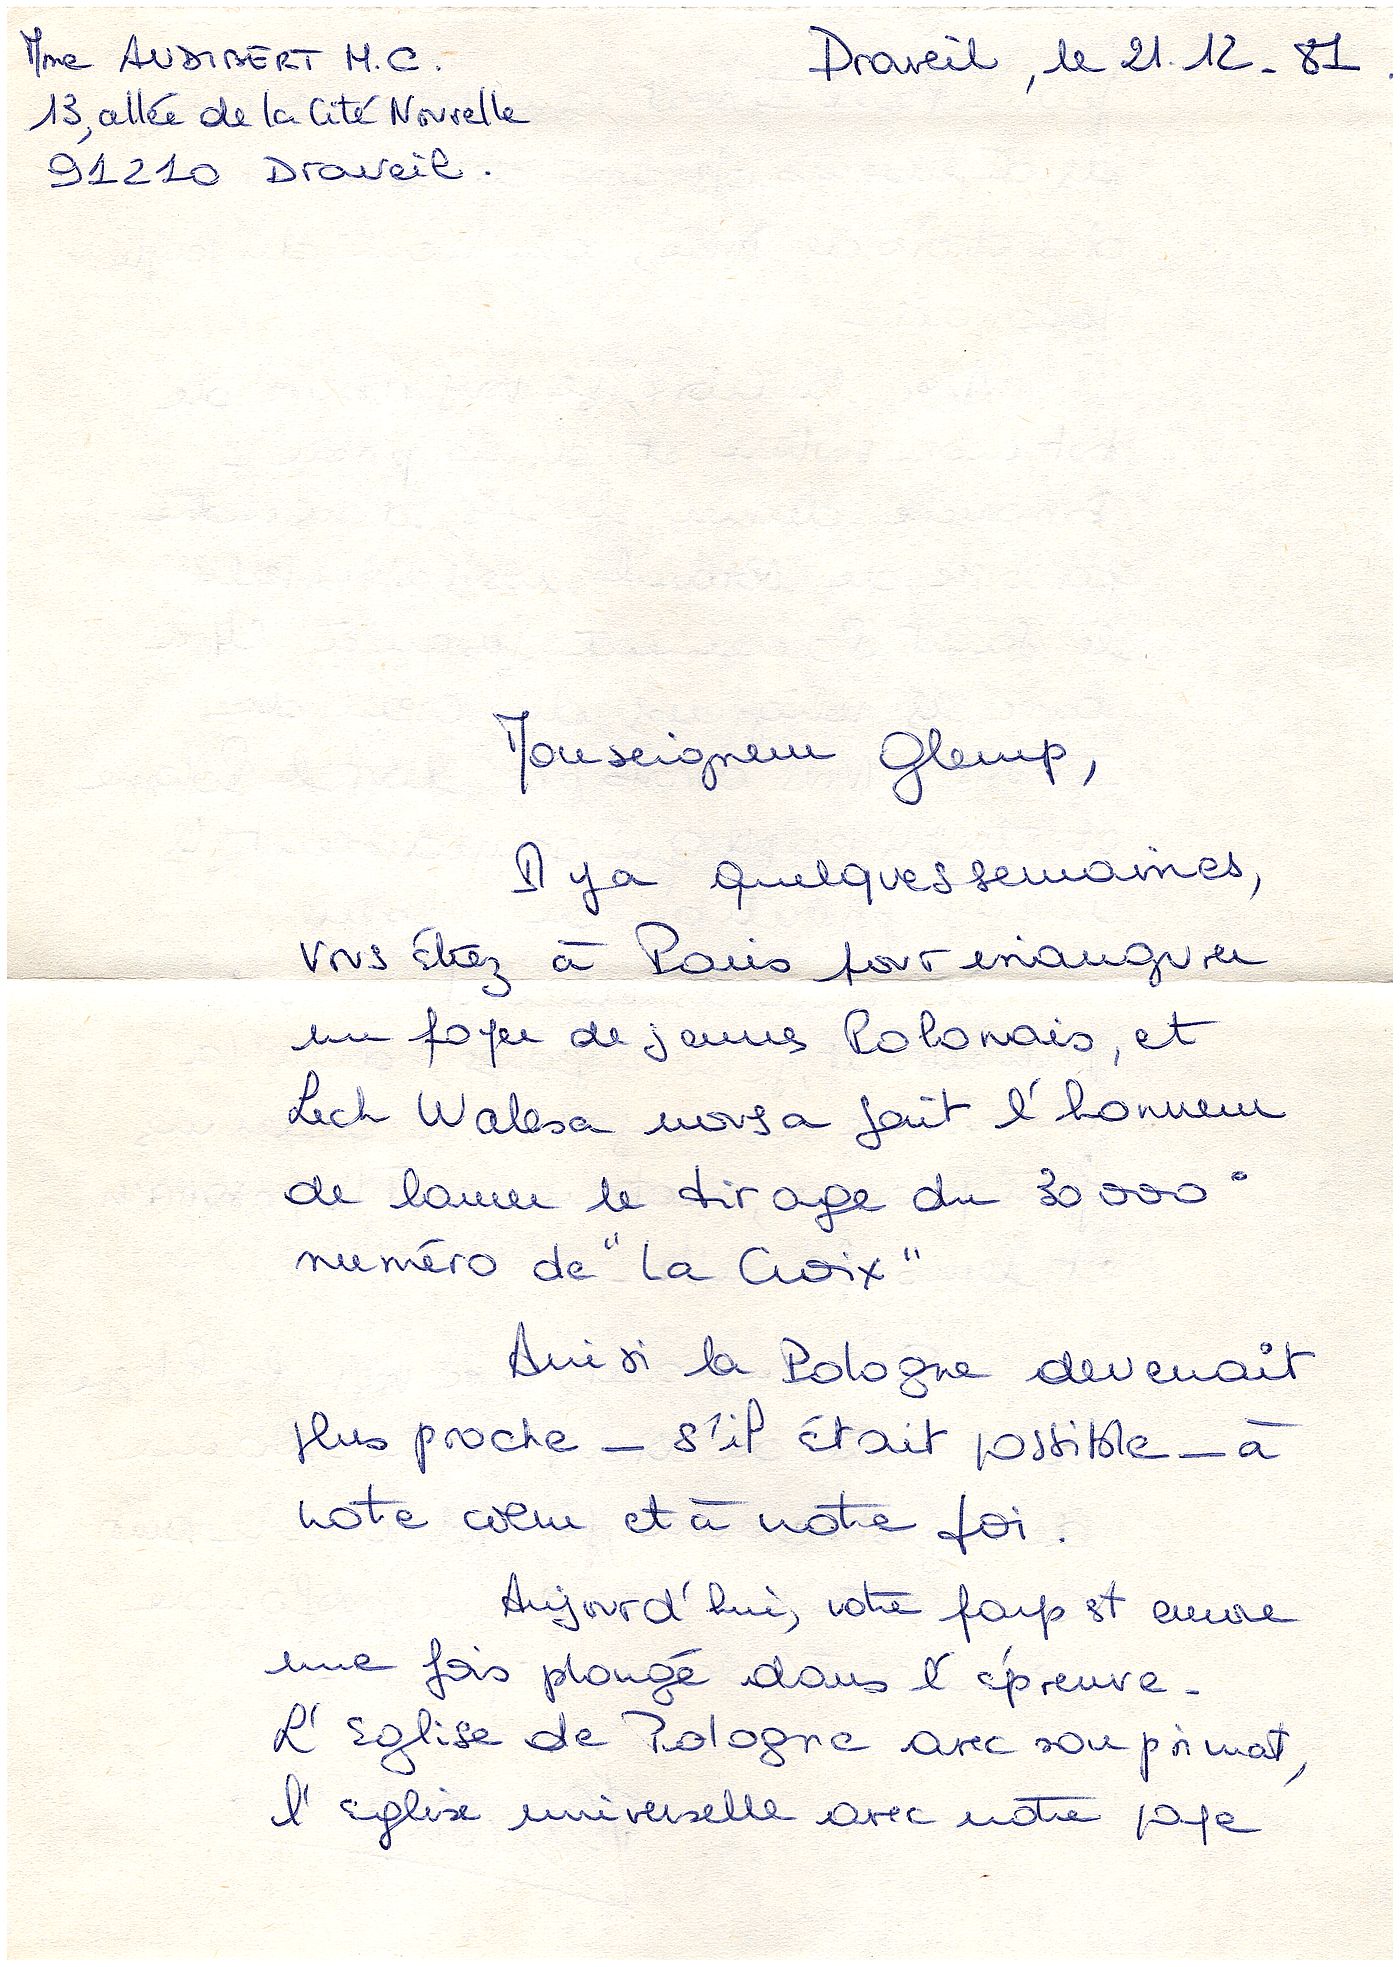 Mme AUDIBERT M.C.
Draveil, le 21.12-81.
13, allée de la Cité Nouvelle
91210 Draveil.
Monseigneur Glemp,
Il y a quelques semaines,
vous étiez à Paris pour inaugurer
un foyer de jeunes Polonais, et
Lech Walesa nous a fait l'honneur
de lancer le tirage du 30000°
numéro de "La Croix"
Ainsi la Pologne devenait
plus proche _ s'il était possible _ à
notre coeur et à notre foi.
Aujourd'hui, votre pays est encore
une fois plongé dans l'épreuve.
L'Eglise de Pologne avec son primat,
l'Eglise universelle avec notre pape